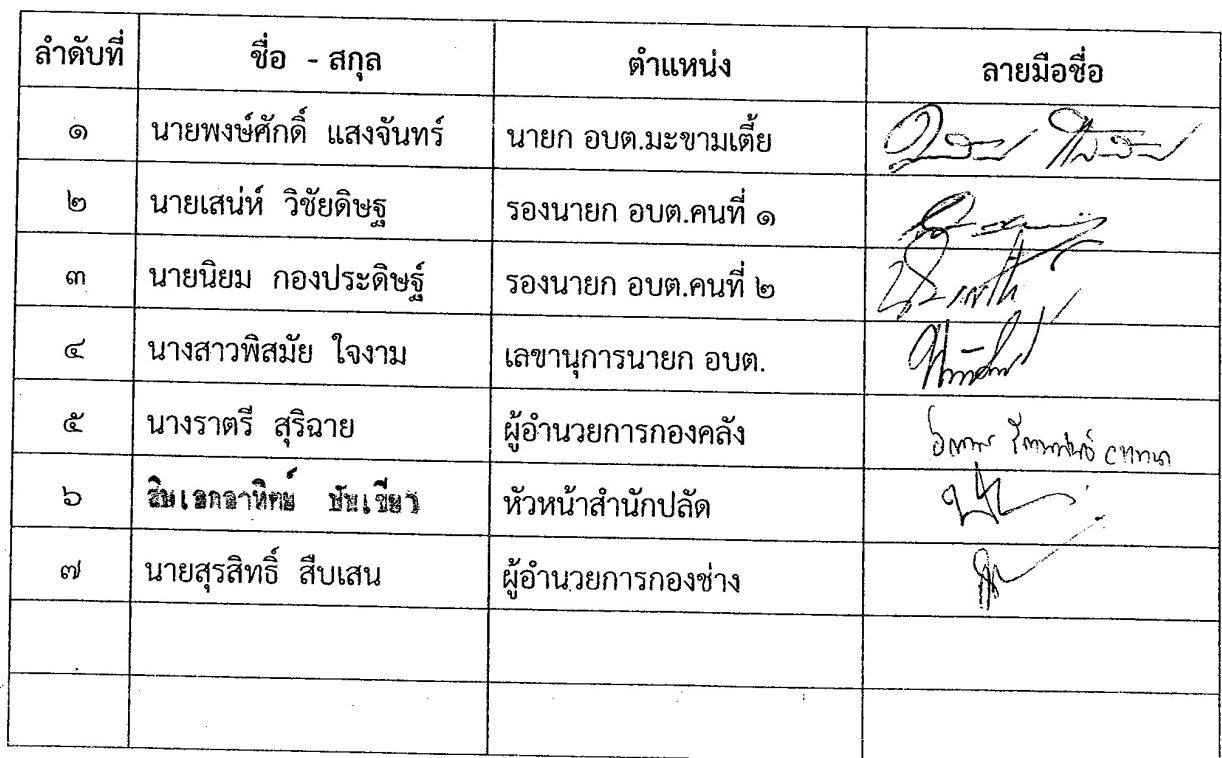 ลำดับที่ ชื่อ - สกุล ตำแหน่ง ลายมือชื่อ
๑ นายพงษ์ศักดิ์ แสงจันทร์ นายก อบต.มะขามเตี้ย
๒ นายเสน่ห์ วิชัยดิษฐ รองนายก อบต.คนที่ ๑
๓ นายนิยม กองประดิษฐ์ รองนายก อบต.คนที่ ๒
๔ นางสาวพิสมัย ใจงาม เลขานุการนายก อบต.
๕ นางราตรี สุริฉาย ผู้อำนวยการกองคลัง
๖ สิบเอกอาทิตย์ ขันเขียว หัวหน้าสำนักปลัด
๗ นายสุรสิทธิ์ สืบเสน ผู้อำนวยการกองช่าง